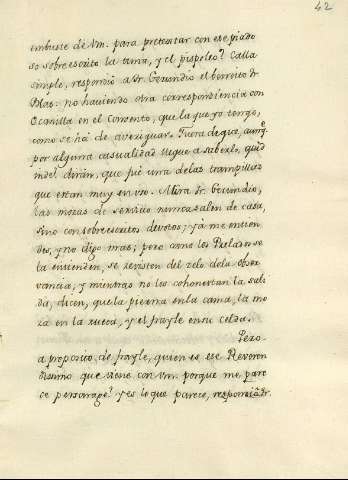 42
embuste de Vm. para pretextar con ese piado
so sobrescrito la tuna, y el pispoleo? Calla
simple, respondió a Fr. Gerundio el borrico de
Blas: no haviendo otra correspondiencia con
Ocanilla en el Convento, que la que yo tengo,
como se há de averiguar? Fuera de que, aunq.e
por alguna casualidad llegue a saberlo, quid
inde? dirán, que fué una de las trampillas
que estan muy en uso. Mira Fr. Gerundio,
las mozas de servicio nunca salen de casa,
sino con sobrescritos devotos; yá me entien
des, y no digo mas; pero como los Prelados se
la entienden, se revisten del zelo de la obser
vancia, y mientras no les cohonestan la sali
da, dicen, que la pierna en la cama, la mo
za en la rueca, y el frayle en su celda.
Pero
a proposito de frayle, quien es ese Reveren
disimo que viene con Vm. porque me pare
ce personage? Y es lo que parece, respondió Fr.